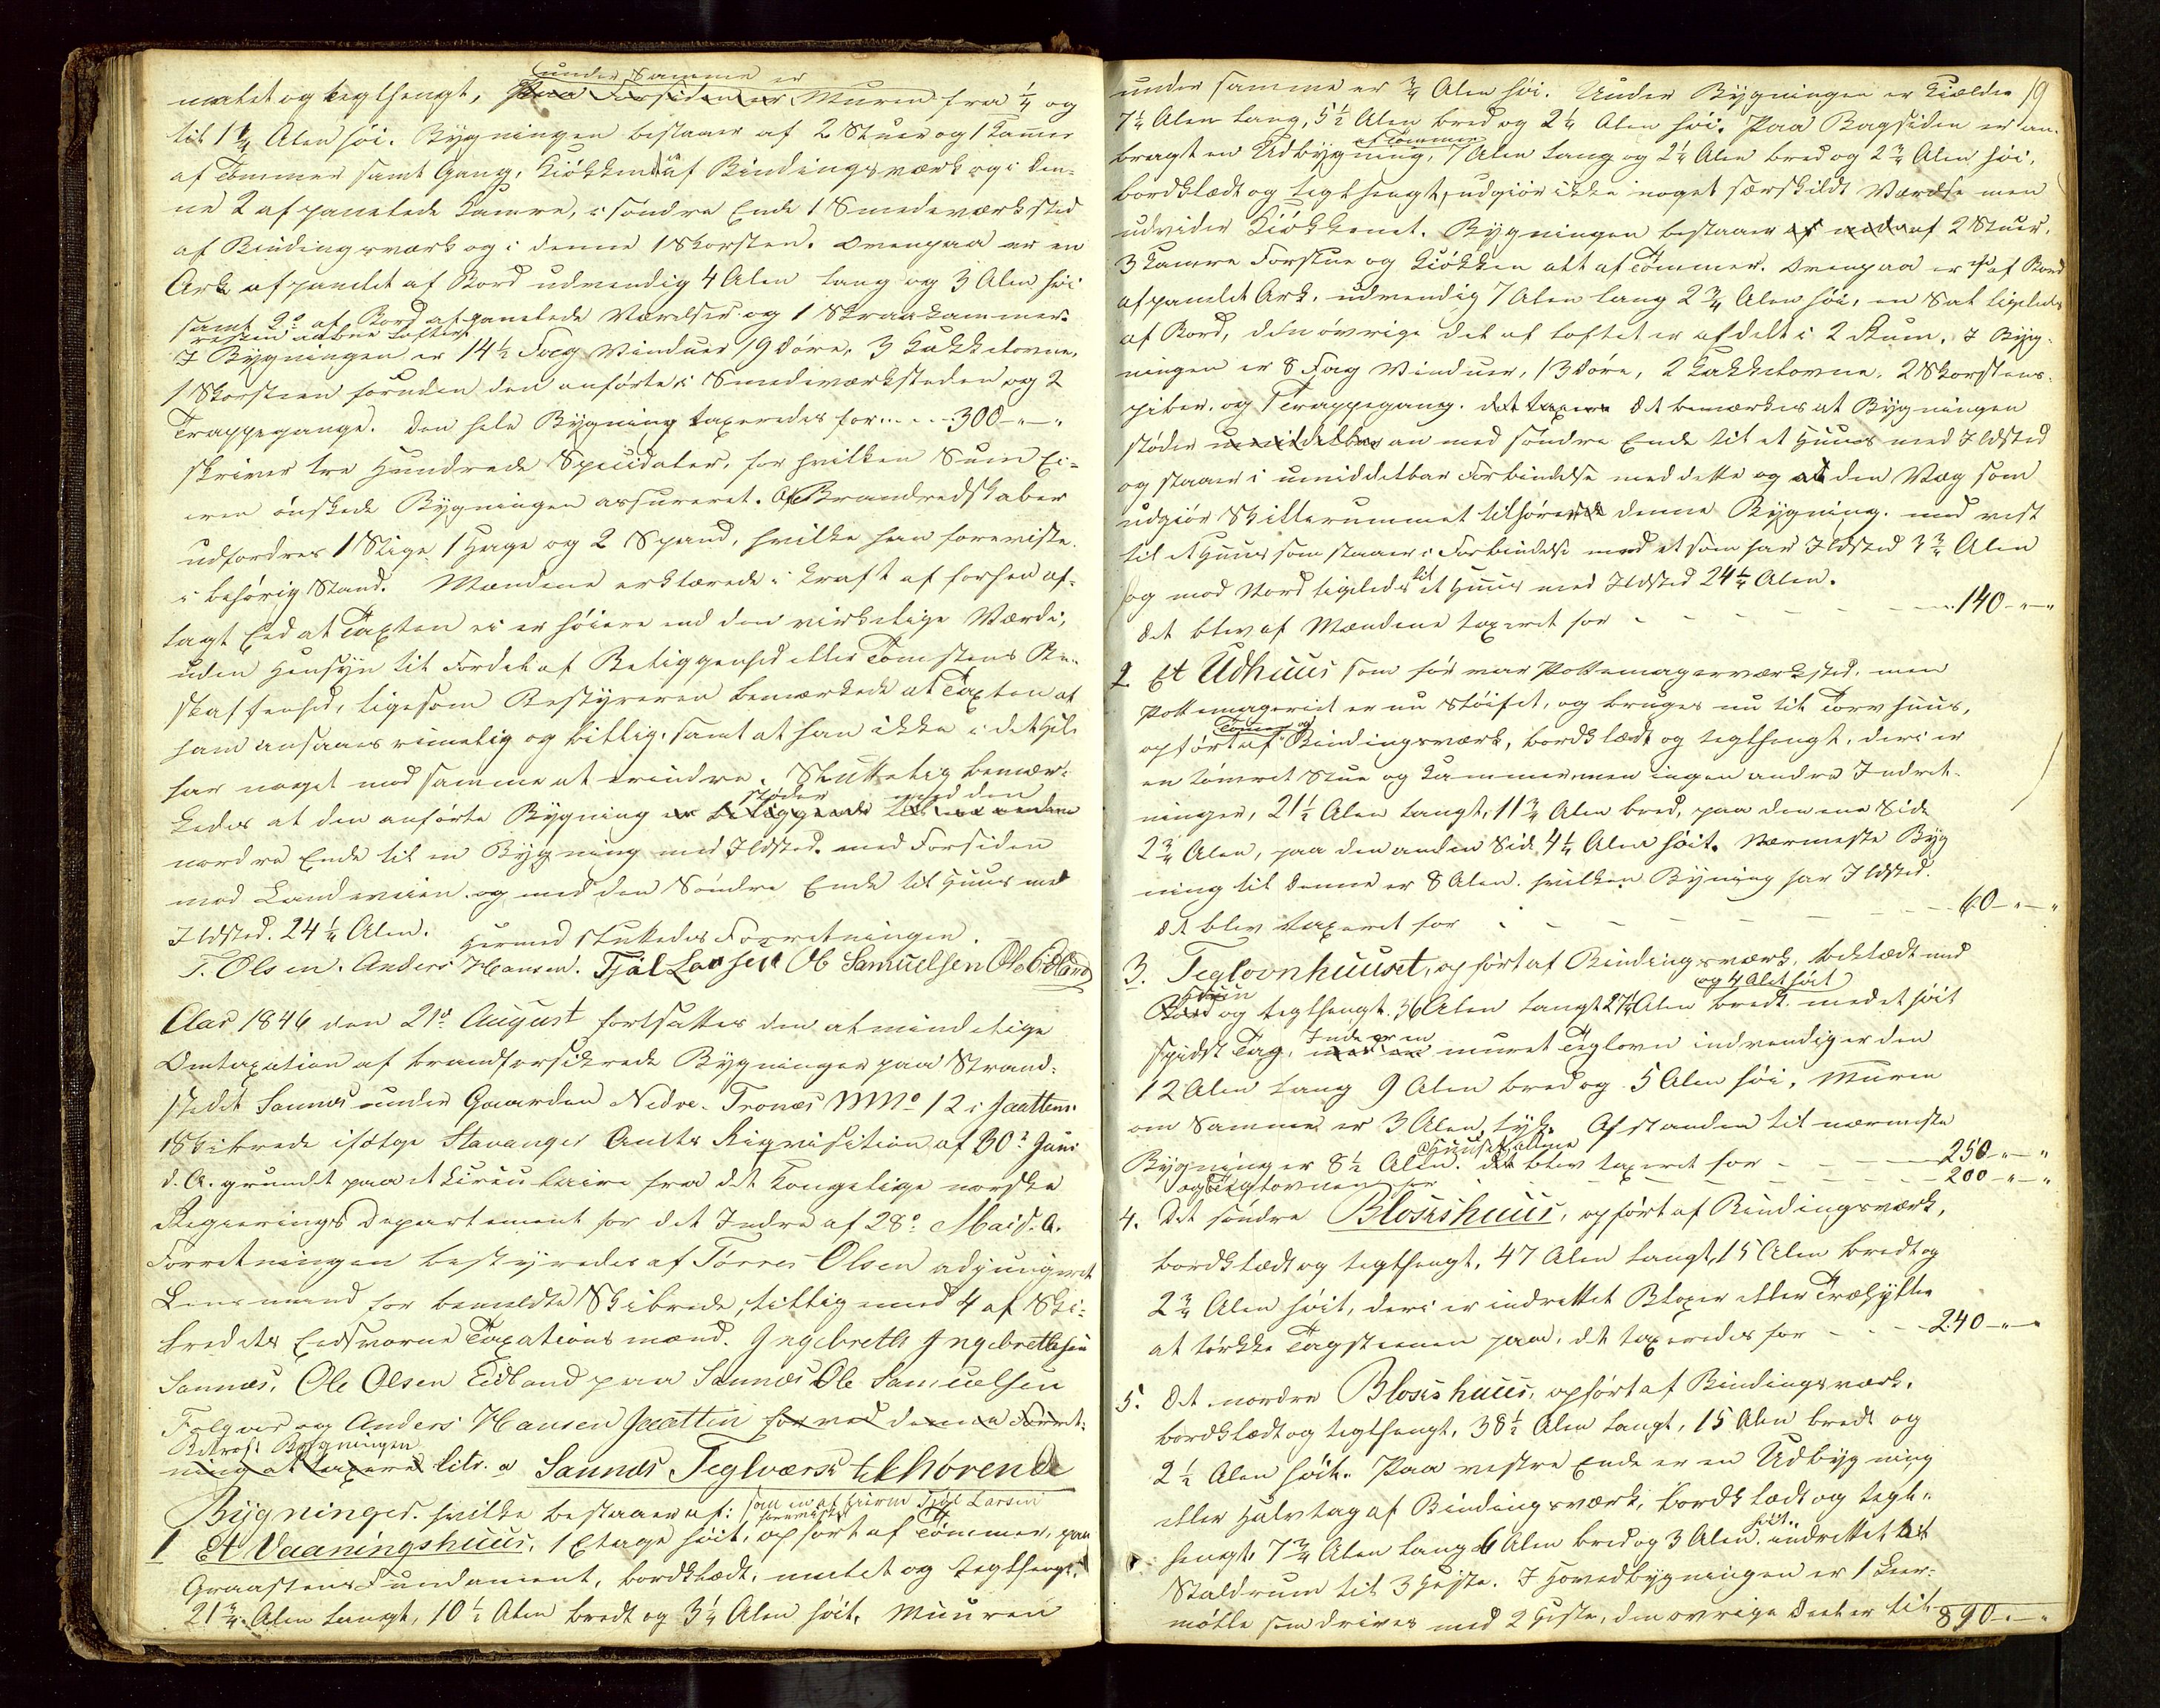 under Samme er
malet og teglhængt, paa Forsiden er Muren fra ¼ og
til 1¼ Alen høi. Bygningen bestaaer af 2 Stuer og 1 Kamer
af Tømmer samt Gang, Kiøkken af Bindingsværk og i den-
ne 2 afpanelede Kamre, i søndre Ende 1 Smedeværksted
af Bindingsværk og i denne 1 Skorsten. Ovenpaa er en
Ark afpanelet af Bord udvendig 4 Alen lang og 3 Alen høi
samt 2de af Bord afpanelede Værelser og 1 Skraakammer.
resten aabne Lofter
I Bygningen er 14½ Fag Vinduer 19 Døre, 3 Kakkelovne,
1 Skorsteen foruden den anførte i Smedeværksteden og 2
Trappegange. Den hele Bygning taxeredes for .... 300 - " - "
skriver tre Hundrede Speciedaler, for hvilken Sum Ei-
eren ønskede Bygningen assureret. Af Brandredskaber
udfordres 1 Stige 1 Hage og 2 Spand, hvilke han foreviste
i behørig Stand. Mændene erklærede i Kraft af forhen af-
lagt Eed at Taxten ei er høiere end den virkelige Værdi,
uden Hensyn til Fordel af Beliggenhed eller Tomtens Be-
skaffenhed, ligesom Bestyreren bemærkede at Taxten af
ham ansaaes rimelig og billig, samt at han ikke i det Hele
har noget mod samme at erindre. Sluttelig bemær-
støder med den
kedes at den anførte Bygning er beliggende
nordre Ende til en Bygning med Ildsted. med Forsiden
mod Landeveien og med den Søndre Ende til Huus med
Ildsted. 24¼ Alen. Hermed sluttedes Forretningen.
T. Olsen. Anders Hansen. Tjøl Larsen Ole Samuelsen Ole Eidland
Aar 1846 den 21de August fortsattes den almindelige
Omtaxation af brandforsikrede Bygninger paa Strand-
stedet Sannæs under Gaarden Nedre-Tronæs MNo 12 i Jaattens
Skibrede ifølge Stavanger Amts Reqvisition af 30te Juni
d. A. grundet paa et Circulaire fra det Kongelige norske
Regjerings Departement for det Indre af 28de Mai d. A.
Forretningen bestyredes af Tørres Olsen adjungeret
Lensmand for bemeldte Skibrede, tillige med 4 af Ski-
bredets Eedsvorne Taxationsmænd. Ingebreth Ingebrethsen
Sannæs, Ole Olsen Eidland paa Sannæs Ole Samuelsen
Folqver og Anders Hansen Jaatten for ved denne Forret-
Betræf Bygningen
ning at taxere litr. a Sannæs Teglværk tilhørende
Bygninger. hvilke bestaaer af: som en af Eierne Tjøl Larsen
foreviste
1 Et Vaaningshuus, 1 Etage høit, opført af Tømmer, paa
Graasteens Fundament, bordklædt, malet og teglhængt,
21¾ Alen langt, 10½ Alen bredt og 3¼ Alen høit, Muuren
19
under samme er ¾ Alen høi. Under Bygningen er Kielder
7½ Alen lang, 5½ Alen bred og 2¼ Alen høi. Paa Bagsiden er an-
af Tømmer
bragt en Udbygning, 7 Alen lang og 2¼ Alen bred og 2¾ Alen høi,
bordklædt og teglhængt, udgiør ikke noget særskildt Værelse men
udvider Kiøkkenet. Bygningen bestaaer af 2 Stuer,
3 Kamre Forstue og Kiøkken alt af Tømmer. Ovenpaa er af Bord
afpanelet Ark, udvendig 7 Alen lang 2¾ Alen høi, en Sal ligeledes
af Bord, den øvrige Del af Loftet er afdelt i 2 Rum. I Byg-
ningen er 8 Fag Vinduer, 13 Døre, 2 Kakkelovne, 2 Skorstens-
piber og 1 Trappegang. det taxere Det bemærkes at Bygningen
støder umiddelbar an med søndre Ende til et Huus med Ildsted
og staaer i umiddelbar Forbindelse med dette og at den Væg som
udgiør Skillerummet tilhører denne Bygning. mod vest
til et Huus som staaer i Forbindelse med et som har Ildsted 3¾ Alen
og mod Nord ligeledes til et Huus med Ildsted 24¼ Alen.
Det blev af Mændene taxeret for - - - - - - 140 - " - "
2 Et Udhuus som før var Pottemagerværksted, men
Pottemageriet er nu sløifet, og bruges nu til Torvhuus,
Tømmer og
opført af Bindingsværk, bordklædt og teglhængt, deri er
en tømret Stue og Kammer, men ingen andre Indret-
ninger, 21½ Alen langt, 11¾ Alen bred, paa den ene Side
2¾ Alen, paa den anden Side 4¼ Alen høit. Nærmeste Byg
ning til denne er 8 Alen. hvilken Bygning har Ildsted.
Det blev taxeret for - - - - - - 60 - " - "
3. Teglovnhuuset, opført af Bindingsværk, beklædt med
og 4 Alen høit
Bord og teglhængt. 36 Alen langt 27½ Alen bredt. med et høit
Inde er en
spidst Tag, muret Teglovn indvendig er den
12 Alen lang 9 Alen bred og 5 Alen høi, Muren
om Samme er 3 Alen tyk. Afstanden til nærmeste
Huuset allene
Bygning er 8½ Alen. det blev taxeret for - - - 250 - " - "
og Teglovnen for - - - - - - 200 - " - "
4. Det søndre Blosishuus, opført af Bindingsværk,
bordklædt og teglhængt, 47 Alen langt, 15 Alen bredt og
2¾ Alen høit, deri er indrettet Bloxer eller Træhylder
at tørke Tagstenen paa, det taxeredes for - - - 240 - " -
5. Det nordre Blosishuus, opført af Bindingsværk,
bordklædt og teglhængt, 38½ Alen langt, 15 Alen bredt og
2½ Alen høit. Paa vestre Ende er en Udbygning
eller Halvtag af Bindingsværk, bordklædt og tegl-
høit
hængt. 7¾ Alen lang 6 Alen bred og 3 Alen. indrettet til
Staldrum til 3 Heste. I Hovedbygningen er 1 Leer-
mølle som drives med 2 Heste, den øvrige Deel er til
890 - " - "